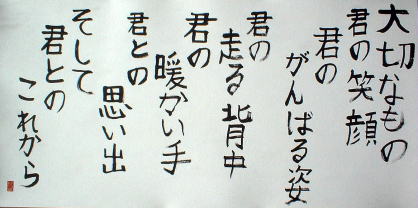 大切なもの
君の笑顔
君の
がんばる姿
君の
走る背中
君の
暖かい手
君との
思い出
そして
君との
これから